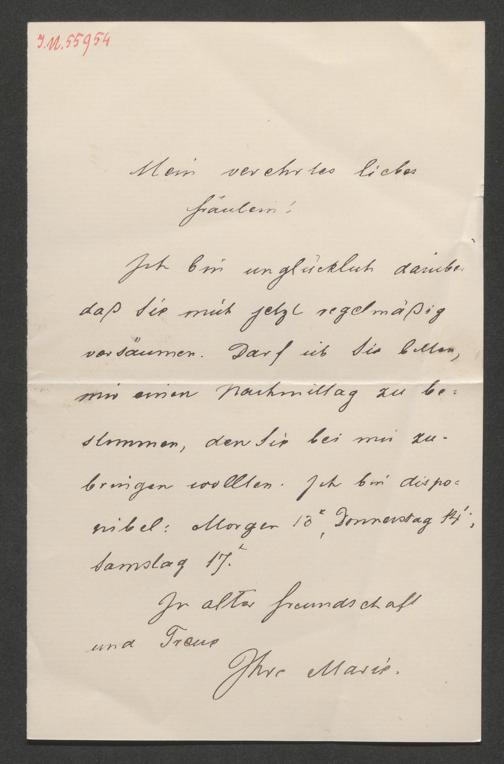 I.N.55954
Mein verehrtes liebes
Fräulein!
Ich bin unglücklich darüber
daß Sie mich jetzt regelmäßig
versäumen. Darf ich Sie bitten,
mir einen Nachmittag zu be=
stimmen, den Sie bei mir zu-
bringen wollten. Ich bin dispo=
nibel: Morgen 13t, Donnerstag 14t,
Samstag 17.t
In alter Freundschaft
und Treue
Ihre Marie.